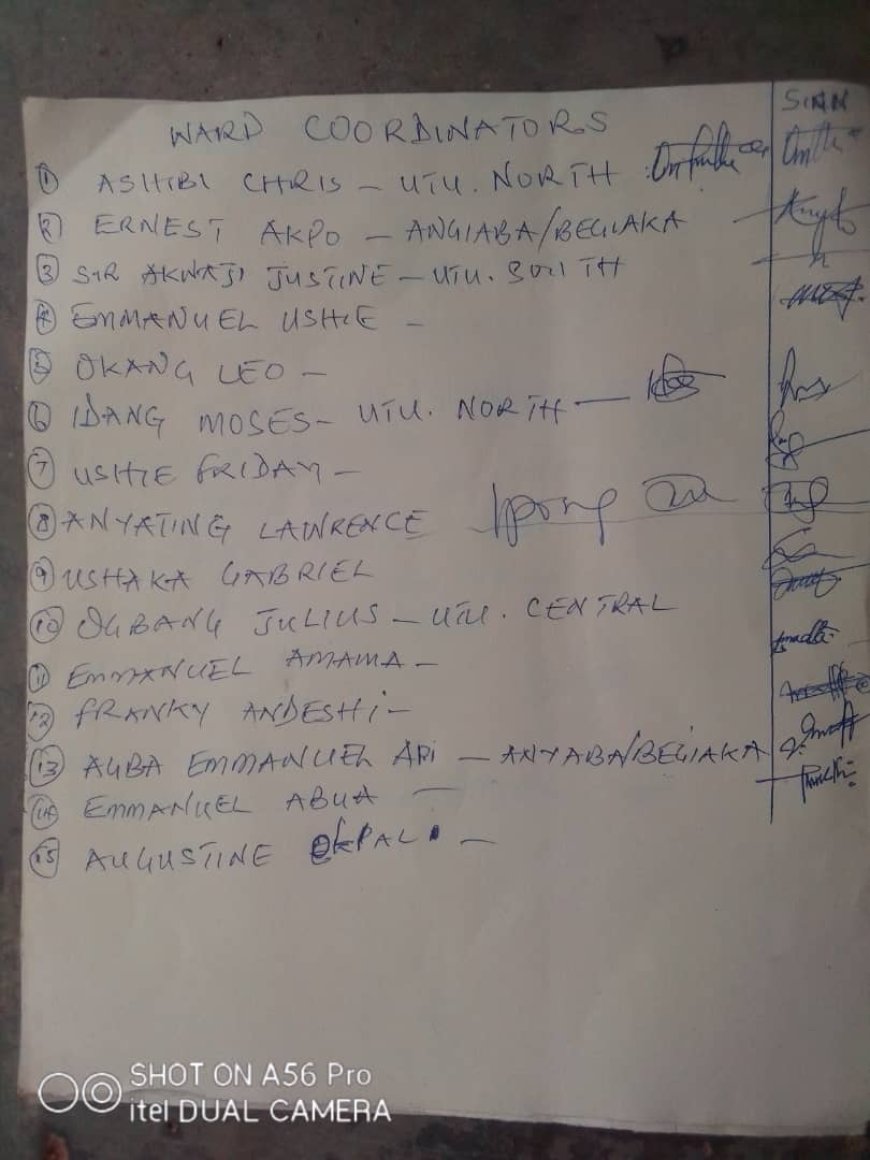 WARD COORDINATORS
SIGN
1 ASHIBI CHRIS - UTU. NORTH
2 ERNEST AKPO - ANGIABA/BEGIAKA
3 SIR AKWAJI JUSTINE - UTU. SOUTH
4 EMMANUEL USHIE -
5 OKANG LEO -
6 IDANG MOSES - UTU. NORTH -
7 USHIE FRIDAY -
8 ANYATING LAWRENCE
9 USHAKA GABRIEL
10 OGBANG JULIUS - UTU. CENTRAL
11 EMMANUEL AMAMA -
12 FRANKY ANDESHI -
13 AGBA EMMANUEL API - ANYABA/BEGIAKA
14 EMMANUEL ABUA -
15 AUGUSTINE OKPALI -
SHOT ON A56 Pro
itel DUAL CAMERA